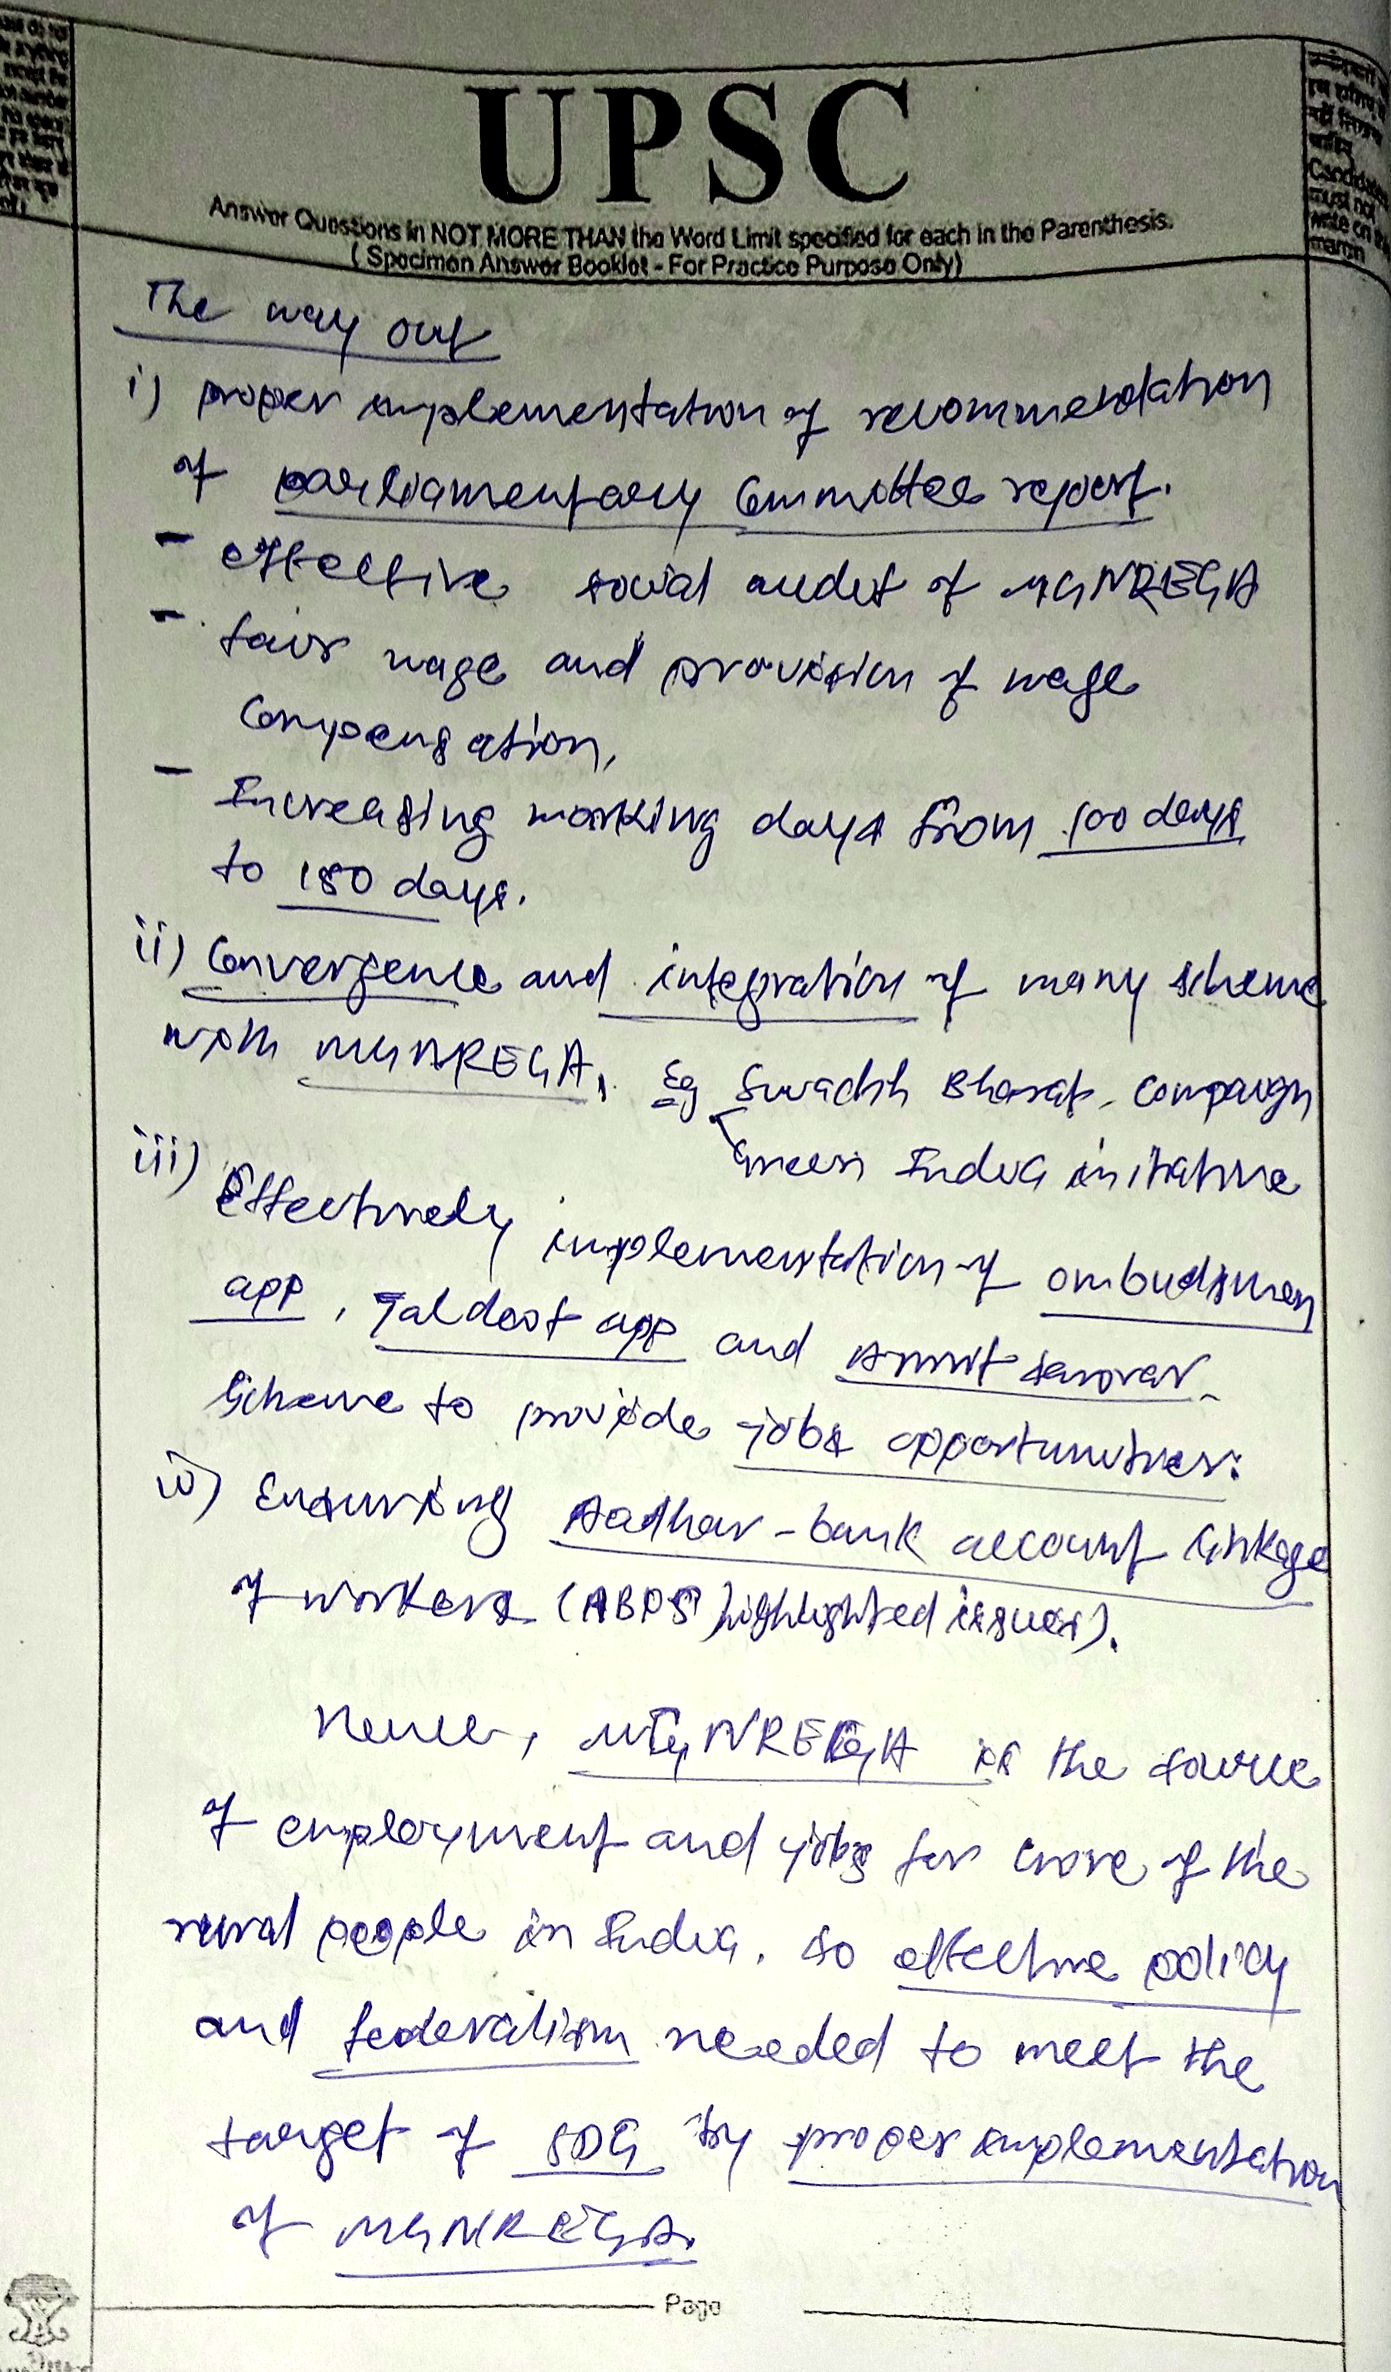 UPSC
Answer Questions in NOT MORE THAN the Word Limit specified for each in the Parenthesis.
( Specimen Answer Booklet - For Practice Purpose Only)
Candidates
must not
write on this
margin
The way out
i) proper implementation of recommendation
of parliamentary Committee report.
- effective social audit of MGNREGA
- fair wage and provision of wage
compensation,
- Increasing working days from 100 days
to 150 days.
ii) Convergence and integration of many scheme
with MGNREGA. Eg Swachh Bharat campaign
Green India initiative
iii) Effectively implementation of ombudsmen
app, Jaldoot app and Amrit Sarovar
Scheme to provide jobs opportunities.
iv) Ensuring Aadhar-bank account linkage
of workers (ABPS highlighted issues).
Hence, MGNREGA is the source
of employment and jobs for crore of the
rural people in India. So effective policy
and federalism needed to meet the
target of SDG by proper implementation
of MGNREGA.
Page